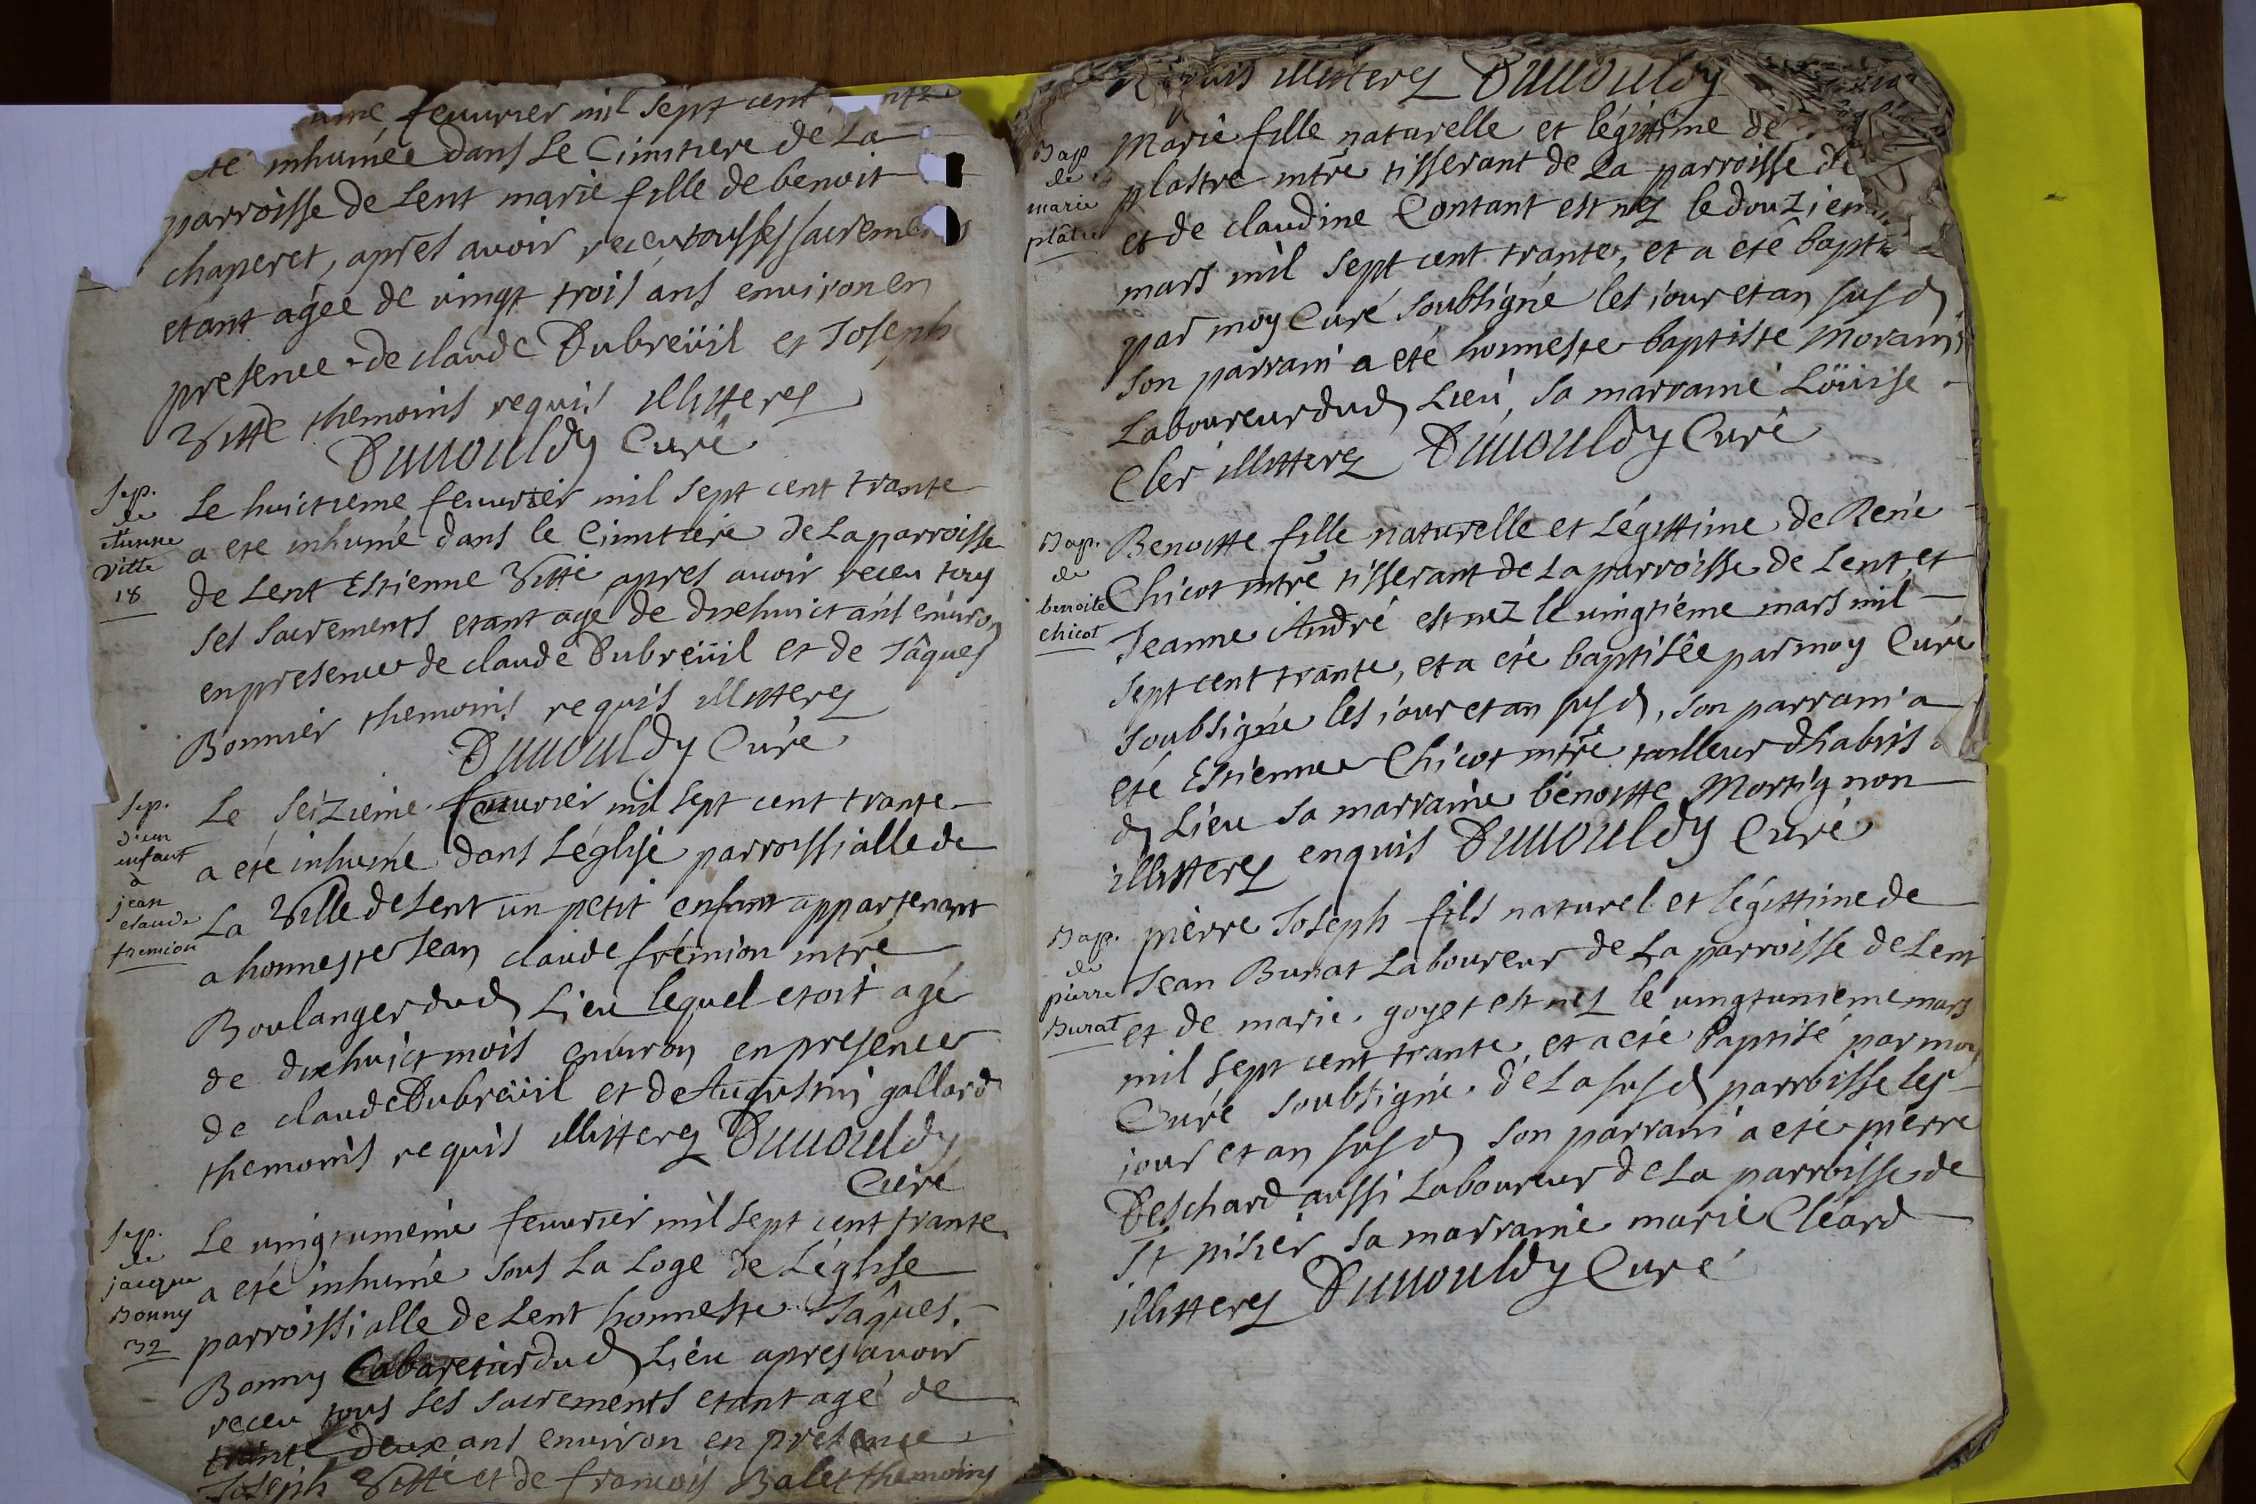 feuurier mil sept cent
été inhumée dans Le Cimitiere de La
parroisse de Lent marie fille de benoit
chaneret, apres avoir receu tous ses sacrements
etant agée de vingt trois ans environ en
presence de claude Dubreüil et Joseph
Vitte themoins requis illitterez
Duuouldy Curé
sep.
de
etienne
vitte
18
Le huictieme feuurier mil sept cent trante
a eté inhumé dans le Cimitiere de La parroisse
de Lent Estienne Vitte apres avoir receu tous
ses sacrements etant agé de dixhuict ans environ
en presence de claude Dubreüil et de Jâques
Bonnier themoins requis illitterez
Duuouldy Curé
sep.
d'un
enfant
à
jean
claude
fremion
Le seizieme feuurier mil sept cent trante
a eté inhumé dans L'église parroissialle de
La Ville de Lent un petit enfant appartenant
a honneste Jean claude frémion mtré
Boulanger dud Lieu lequel etoit agé
de dixhuict mois environ en presence
de claude Dubreüil et de Augustin gallard
themoins requis illitterez Duuouldy
Curé
sep.
de
jacque
Bonny
32
Le vingtunieme feuurier mil sept cent trante
a eté inhumé sous La Loge de L'église
parroissialle de Lent honneste Jâques
Bonny Cabaretier dud Lieu apres avoir
receu tous ses sacrements etant agé de
trante deux ans environ en presence
Joseph Vitte et de francois Balet themoins
requis illitterez Duuouldy
Bap
de
marie
plâtre
Marie fille naturelle et légittime de
plastre mtré tisserant de La parroisse de
et de claudine Contant est nez le douzieme
mars mil sept cent trante, et a eté bapti
par moy Curé soubsigné les jour et an susd
son parrain a eté honneste baptiste Morain
Laboureur dud Lieu, sa marraine Loüise
Cler illitterez Duuouldy Curé
Bap.
de
benoite
chicot
Benoitte fille naturelle et Légittime de René
Chicot mtré tisserant de La parroisse de Lent et
Jeanne André est nez le vingtiéme mars mil
sept cent trante, et a eté baptisée par moy Curé
soubsigné les jour et an susd, son parrain a
eté Estienne Chicot mtré tailleur d'habits
d Lieu sa marraine benoitte Mortignon
illitterez enquis Duuouldy Curé
Bap.
de
pierre
Burat
pierre Joseph fils naturel et légittime de
Jean Burat Laboureur de La parroisse de Lent
et de marie goyet est nez le vingtunieme mars
mil sept cent trante, et a eté baptisé par moy
Curé soubsigné de La susd parroisse les
jour et an susd son parrain a eté pierre
Deschard aussi Laboureur de La parroisse de
St nisier sa marraine marie Cléard
illitterez Duuouldy Curé